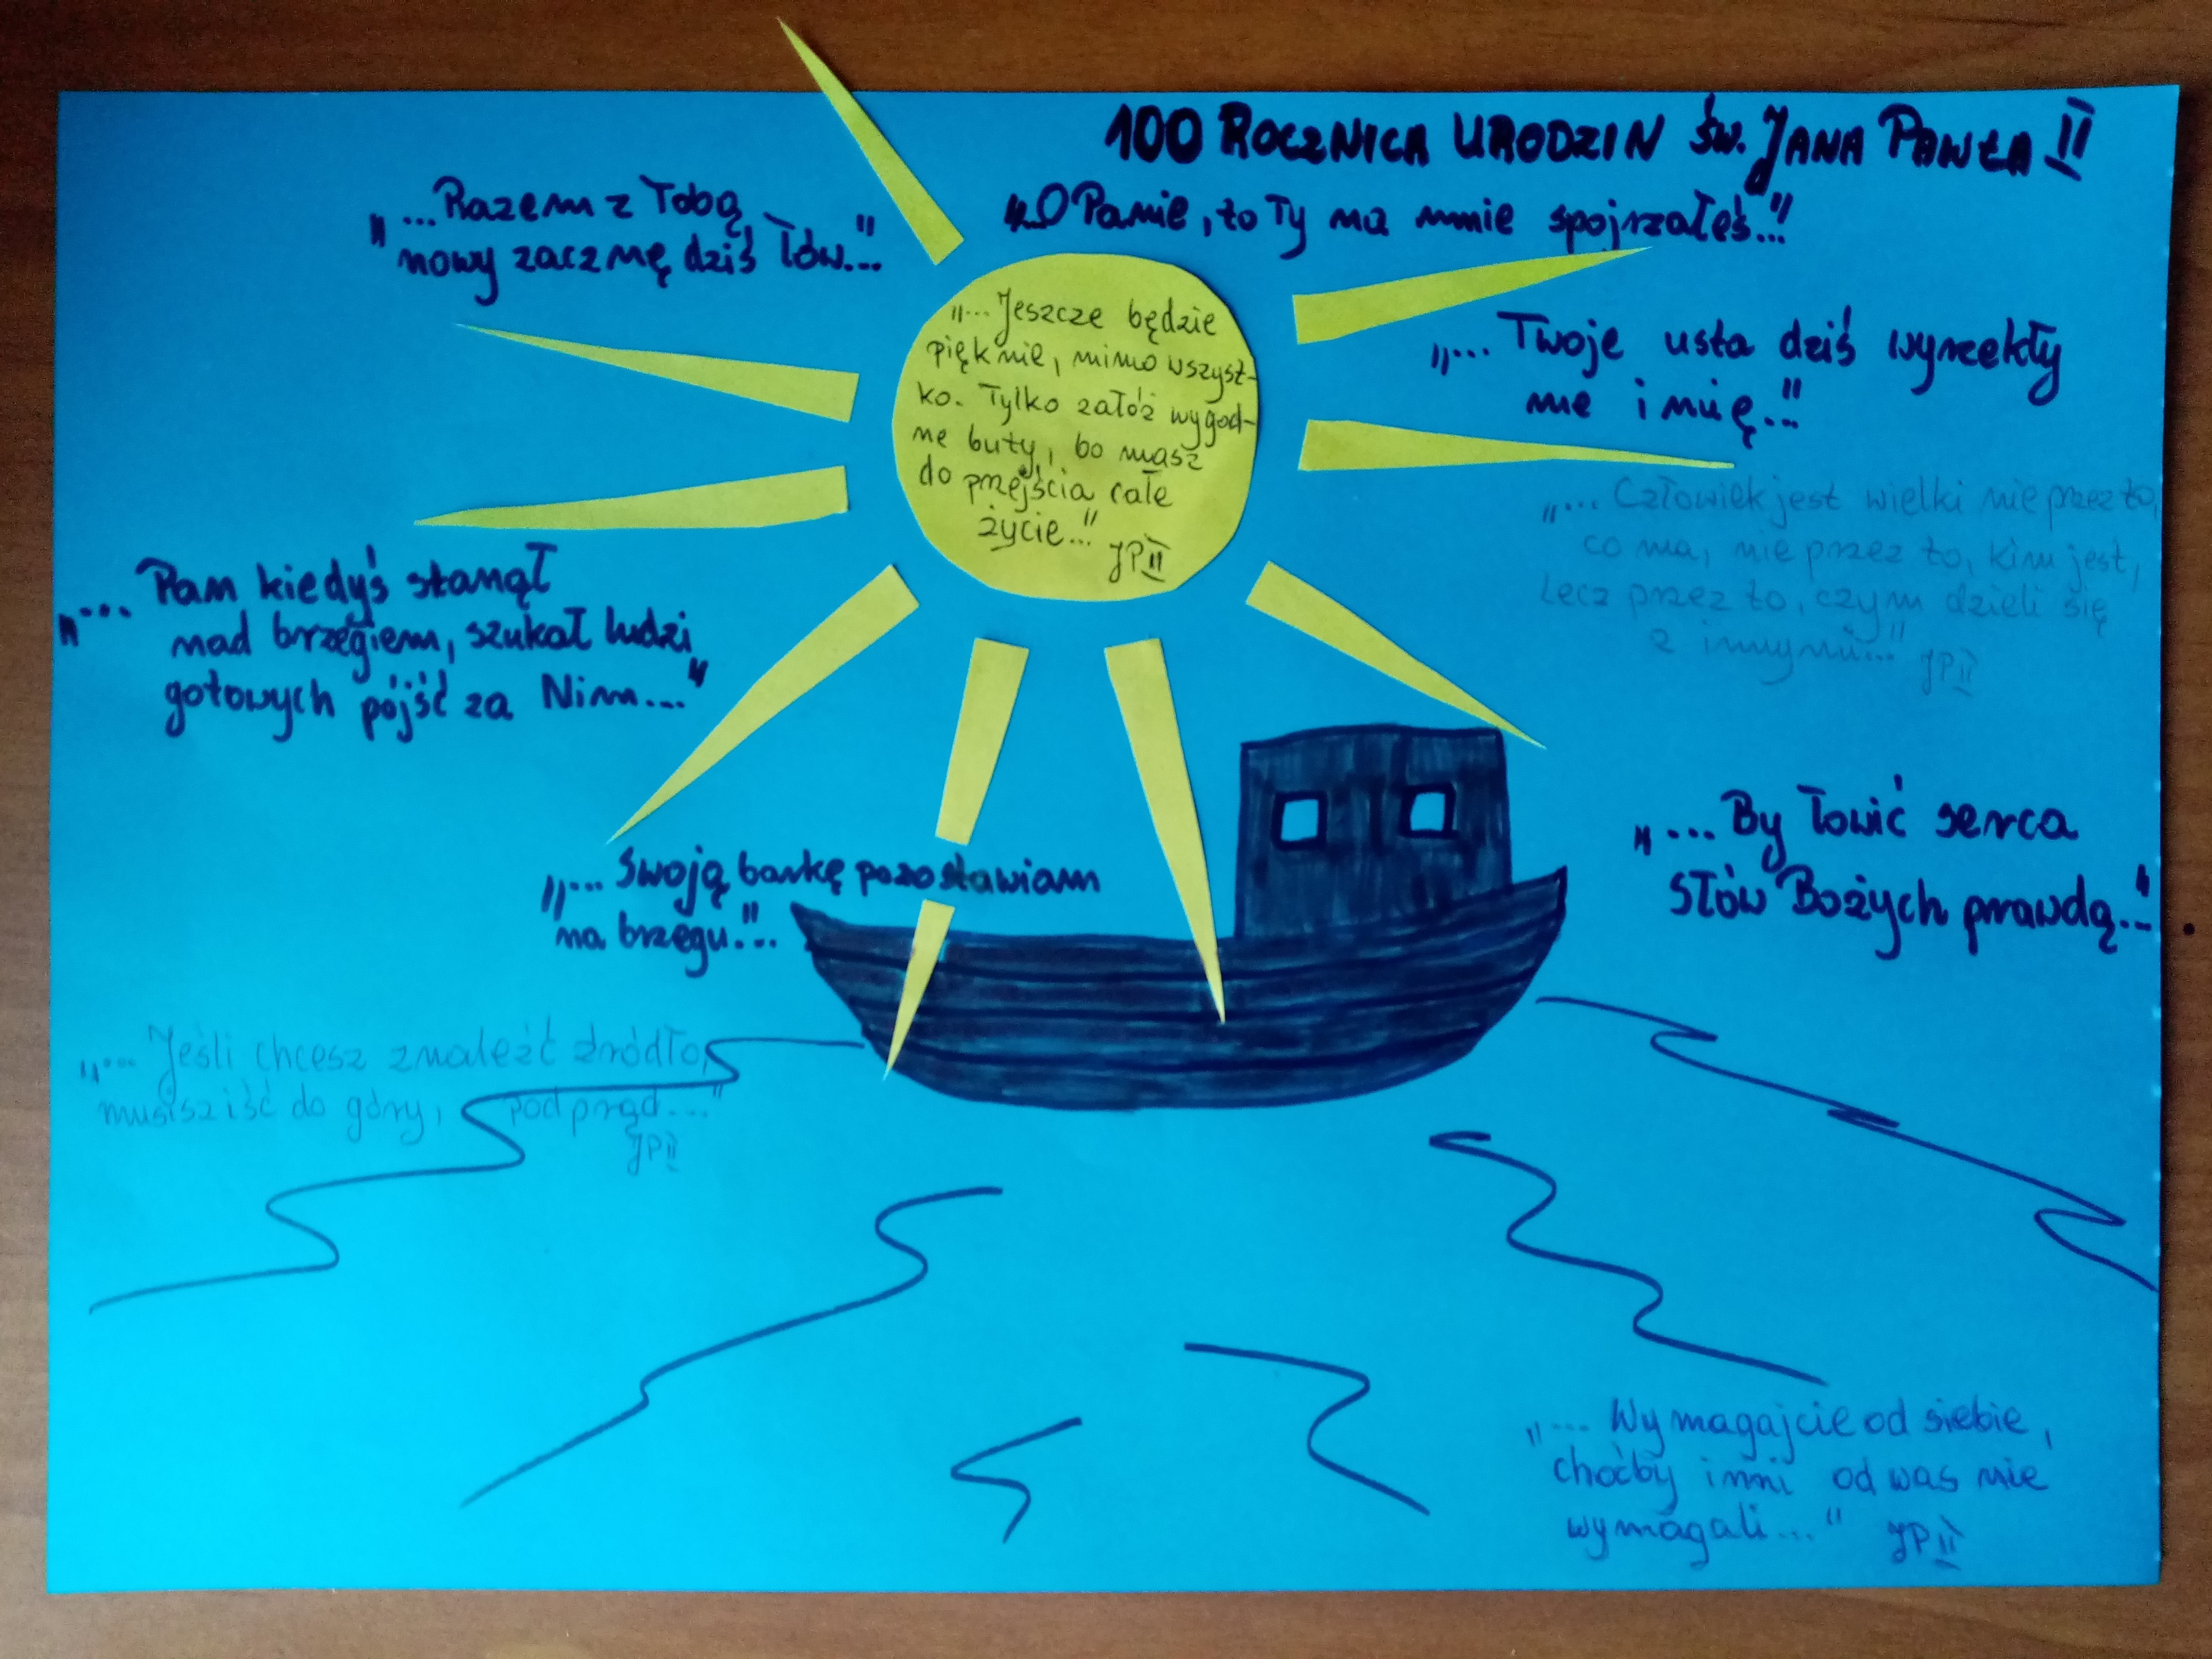 100 ROCZNICA URODZIN ŚW. JANA PAWŁA II
"...O Panie, to Ty na mnie spojrzałeś..."
"...Razem z Tobą
nowy zacznę dziś łów..."
"...Jeszcze będzie
pięknie, mimo wszyst-
ko. Tylko załóż wygod-
ne buty, bo masz
do przejścia całe
życie..."
JPII
"... Twoje usta dziś wyrzekły
me imię..."
"... Człowiek jest wielki nie przez to,
co ma, nie przez to, kim jest,
lecz przez to, czym dzieli się
z innymi..." JPII
"... Pan kiedyś stanął
nad brzegiem, szukał ludzi
gotowych pójść za Nim..."
"... Swoją barkę pozostawiam
na brzegu..."
"... By łowić serca
Słów Bożych prawdą..."
"... Jeśli chcesz znaleźć źródło,
musisz iść do góry, pod prąd..."
JPII
"... Wymagajcie od siebie,
choćby inni od was nie
wymagali..." JPII